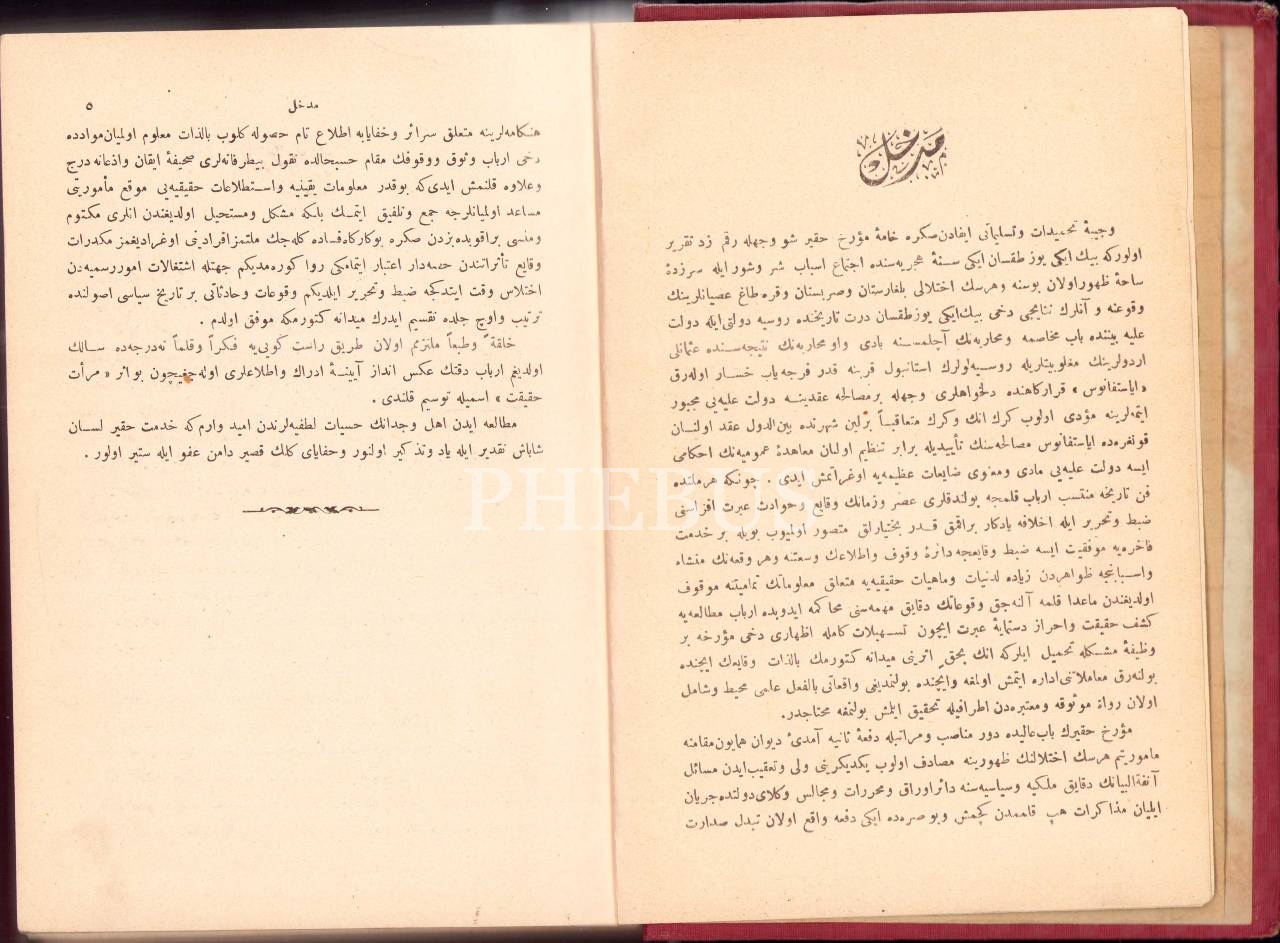 مدخل
وجیبهٔ تحمیدات و تسلیماتی ایفادن‌صکره خامهٔ مؤرخ حقیر شو وجهله رقم زد تقریر
اولورکه بیك ایکی یوز طقسان ایکی سنهٔ هجریه‌سنده اجتماع اسباب شر وشور ایله سرزدهٔ
ساحهٔ ظهور اولان بوسنه وهرسك اختلالی بلغارستان وصربستان وقره طاغ عصیانلرینك
وقوعنه و آنلرك نتایجی دخی بیك‌ایکی یوزطقسان درت تاریخنده روسیه دولتی‌ایله دولت
علیه بیننده باب مخاصمه ومحاربه‌نك آچلمسنه بادی واو محاربه‌نك نتیجه‌سنده عثمانلی
اردولرینك مغلوبیتلریله روسیه‌لولرك استانبول قربنه قدر فرجه‌یاب خسار اوله‌رق
«ایاستفانوس» قرارکاهنده دلخواهلری وجهله برمصالحه عقدینه دولت علیه‌یی مجبور
ایتمه‌لرینه مؤدی اولوب کرك انك وکرك متعاقباً برلین شهرنده بین‌الدول عقد اولنان
قونغره‌ده ایاستفانوس مصالحه‌سنك تأییدیله برابر تنظیم اولنان معاهدهٔ عمومیه‌نك احکامی
ایسه دولت علیه‌یی مادی ومعنوی ضایعات عظیمه‌یه اوغراتمش ایدی . چونکه هرملتده
فن تاریخه منتسب ارباب قلمجه بولندقلری عصر وزمانك وقایع وحوادث عبرت افزاسنی
ضبط وتحریر ایله اخلافه یادکار براقمق قدر بختیارلق متصور اولمیوب بویله بر خدمت
فاخره‌یه موفقیت ایسه ضبط وقایعجه دائرهٔ وقوف واطلاعك وسعتنه وهر وقعه‌نك منشاء
واسبابنجه ظواهردن زیاده لدنیات وماهیات حقیقیه‌یه متعلق معلوماتك تمامیتنه موقوف
اولدیغندن ماعدا قلمه آلنه‌جق وقوعاتك دقایق مهمه‌سنی محاکمه ایدوبده ارباب مطالعه‌یه
کشف حقیقت واحراز دستمایهٔ عبرت ایچون تسهیلات کامله اظهاری دخی مؤرخه بر
وظیفهٔ مشکله تحمیل ایلرکه انك بحق اثرینی میدانه کتورمك بالذات وقایعك ایچنده
بولنه‌رق معاملاتنی‌اداره ایتمش اولمغه وایچنده بولنمدیغی واقعاتی بالفعل علمی محیط وشامل
اولان رواة موثوقه ومعتبره‌دن اطرافیله تحقیق ایلمش بولنمغه محتاجدر.
مؤرخ حقیرك باب‌عالیده دور مناصب ومراتبله دفعهٔ ثانیه آمدیٔ دیوان همایون‌مقامنه
ماموریتم هرسك اختلالنك ظهورینه مصادف اولوب یکدیکرینی ولی وتعقیب‌ایدن مسائل
آنفةالبیانك دقایق ملکیه وسیاسیه‌سنه دائراوراق ومحررات ومجالس وکلای‌دولتده‌جریان
ایلیان مذاکرات هپ قلممدن کچمش وبوصره‌ده ایکی دفعه واقع اولان تبدل صدارت
مدخل ٥
هنکامه‌لرینه متعلق سرائر وخفایایه اطلاع تام حصوله کلوب بالذات معلوم اولمیان‌موادده
دخی ارباب وثوق ووقوفك مقام حسبحالده نقول بیطرفانه‌لری صحیفهٔ ایقان واذعانه‌درج
وعلاوه قلنمش ایدی‌که بوقدر معلومات یقینیه واستطلاعات حقیقیه‌یی موقع مأموریتی
مساعد اولمیانلرجه جمع وتلفیق ایتمك بلکه مشکل ومستحیل اولدیغندن انلری مکتوم
ومنسی براقوبده بزدن صکره بوکارکاه‌فساده کله‌جك ملتمزافرادینی اوغرادیغمز مکدرات
وقایع تأثراتندن حصه‌دار اعتبار ایتمامکی روا کوره‌مدیکم جهتله اشتغالات اموررسمیه‌دن
اختلاس وقت ایتدکجه ضبط وتحریر ایلدیکم وقوعات وحادثاتی بر تاریخ سیاسی اصولنده
ترتیب واوچ جلده تقسیم ایدرك میدانه کتورمکه موفق اولدم .
خلقةً وطبعاً ملتزمم اولان طریق راست کویی‌یه فکراً وقلماً نه‌درجه‌ده سالك
اولدیغم ارباب دقتك عکس انداز آیینهٔ ادراك واطلاعلری اوله‌جغیچون بواثر « مرأت
حقیقت » اسمیله توسیم قلندی .
مطالعه ایدن اهل وجدانك حسیات لطفیه‌لرندن امید وارم‌که خدمت حقیر لسان
شاباش تقدیر ایله یاد وتذکیر اولنور وخفایای کلك قصیر دامن عفو ایله ستیر اولور .
PHEBUS